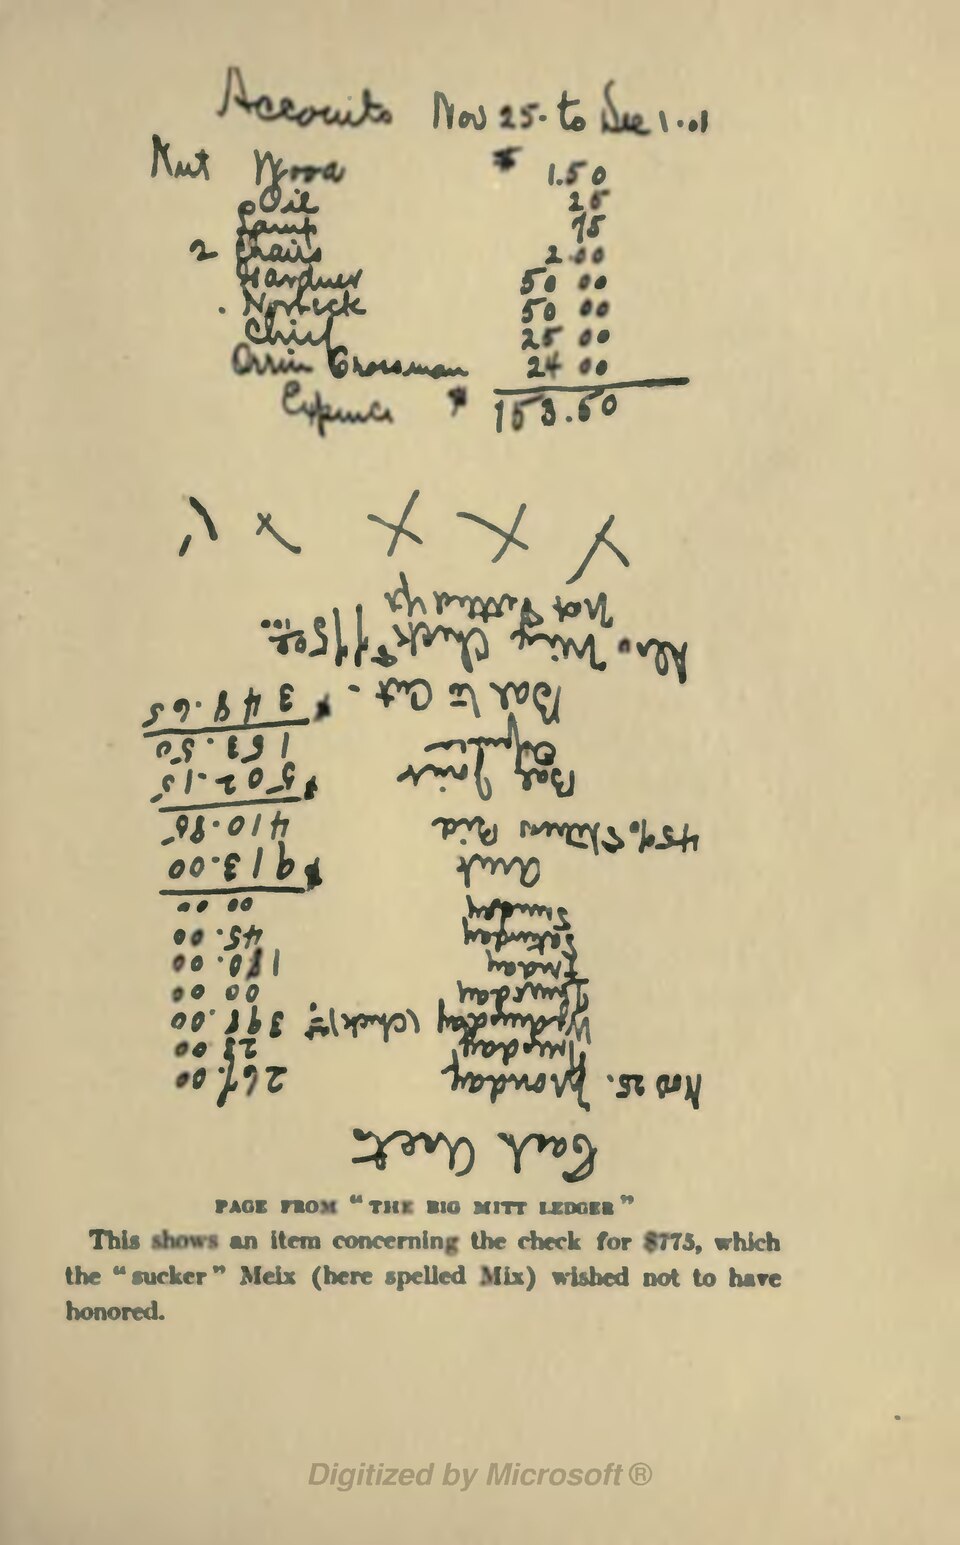 Accounts Nov 25. to Dec 1.01
Wood $ 1.50
Oil 25
Lamp 75
2 Chairs 2.00
Gardner 50 00
Norbeck 50 00
Chief 25 00
Orrin Crossman 24 00
Expence $ 153.50
Cash Acct
Nov 25. Monday 267.00
Tuesday 23 00
Wednesday (Check) 398.00
Thursday 00 00
Friday 180.00
Saturday 45.00
Sunday 00 00
Amt $ 913.00
45% Steerers Pid 410.85
Bal Joint $ 502.15
Expences 153.50
Bal to Cut - $ 348.65
Mix Check $775.00
Not Settled
PAGE FROM "THE BIG MITT LEDGER"
This shows an item concerning the check for $775, which
the "sucker" Meix (here spelled Mix) wished not to have
honored.
Digitized by Microsoft ®